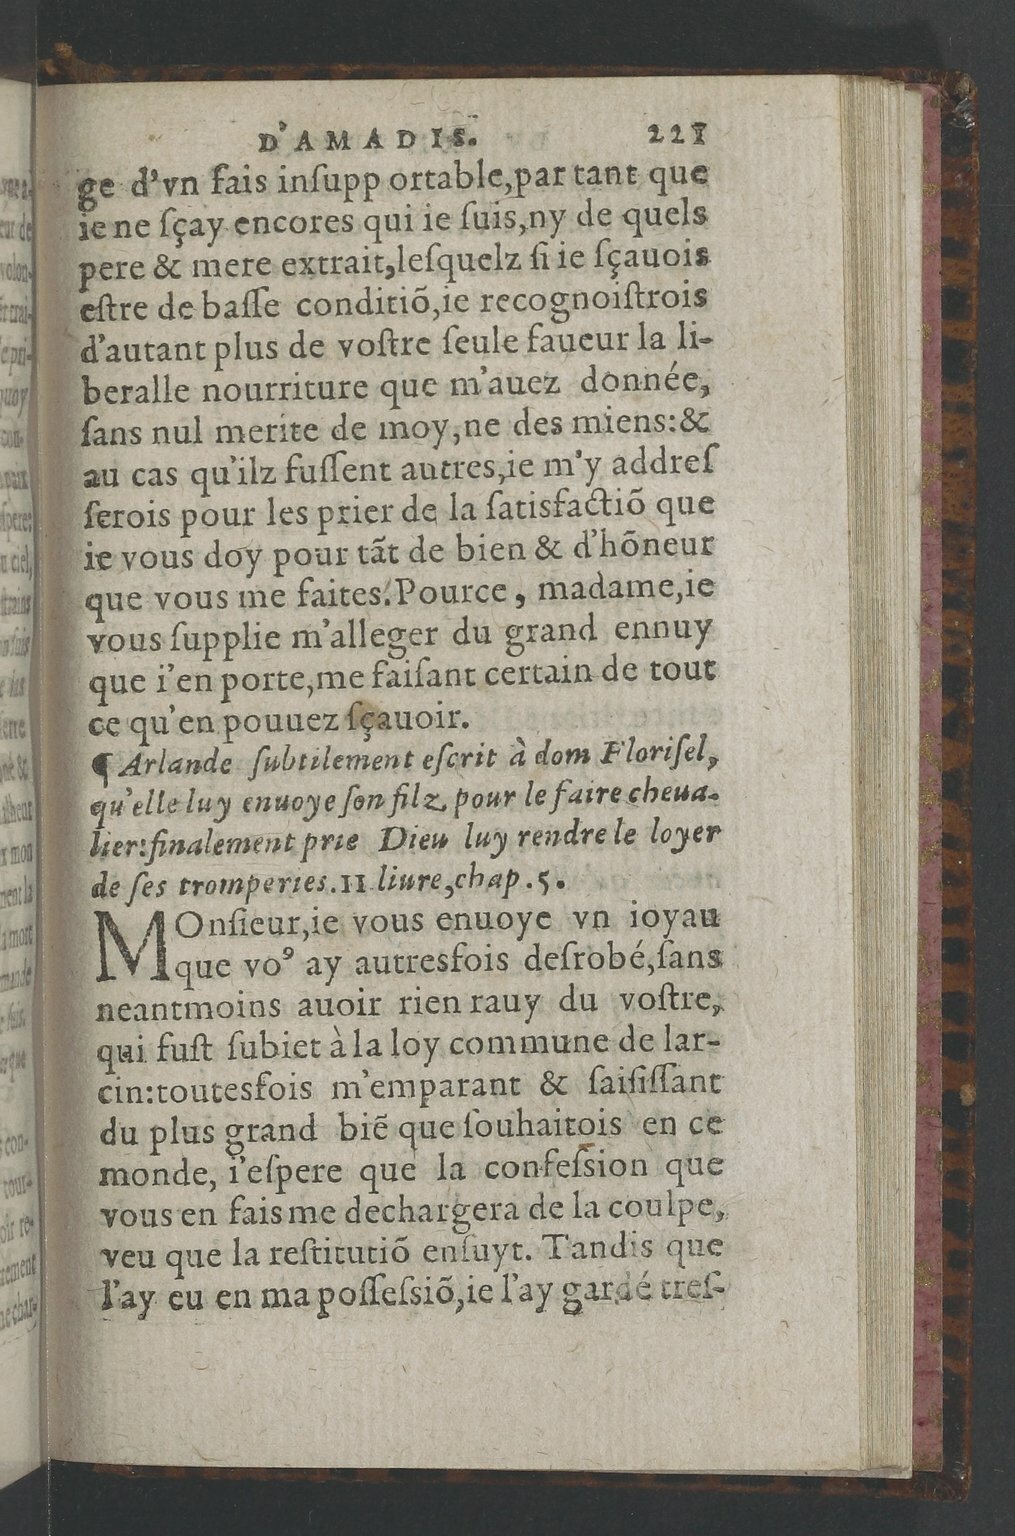 D'AMADIS. 221
ge d'vn fais inſupp ortable,par tant que
ie ne ſçay encores qui ie ſuis,ny de quels
pere & mere extrait,leſquelz ſi ie ſçauois
eſtre de baſſe conditiõ,ie recognoiſtrois
d'autant plus de voſtre ſeule faueur la li-
beralle nourriture que m'auez donnée,
ſans nul merite de moy,ne des miens:&
au cas qu'ilz fuſſent autres,ie m'y addreſ
ſerois pour les prier de la ſatisfactiõ que
ie vous doy pour tãt de bien & d'hõneur
que vous me faites.Pource, madame,ie
vous ſupplie m'alleger du grand ennuy
que i'en porte,me faiſant certain de tout
ce qu'en pouuez ſçauoir.
¶ Arlande ſubtilement eſcrit à dom Floriſel,
qu'elle luy enuoye ſon filz, pour le faire cheua-
lier:finalement prie Dieu luy rendre le loyer
de ſes tromperies.11 liure,chap.5.
MOnſieur,ie vous enuoye vn ioyau
que voꝰ ay autresfois deſrobé,ſans
neantmoins auoir rien rauy du voſtre,
qui fuſt ſubiet à la loy commune de lar-
cin:toutesfois m'emparant & ſaiſiſſant
du plus grand biẽ que ſouhaitois en ce
monde, i'eſpere que la confeſsion que
vous en fais me dechargera de la coulpe,
veu que la reſtitutiõ enſuyt. Tandis que
l'ay eu en ma poſſeſsiõ,ie l'ay gardé treſ-